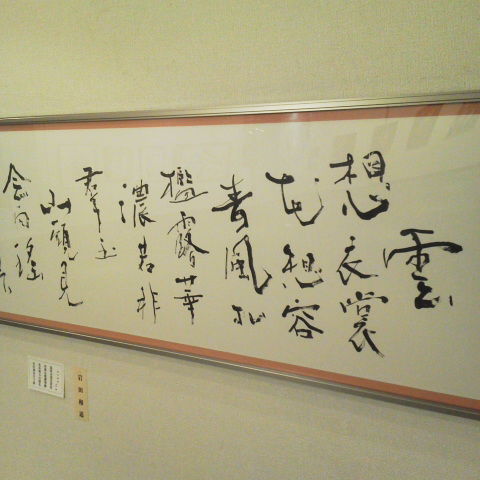 雲
想衣裳
花想容
春風払
檻露華
濃若非
群玉
山頭見
会向瑶